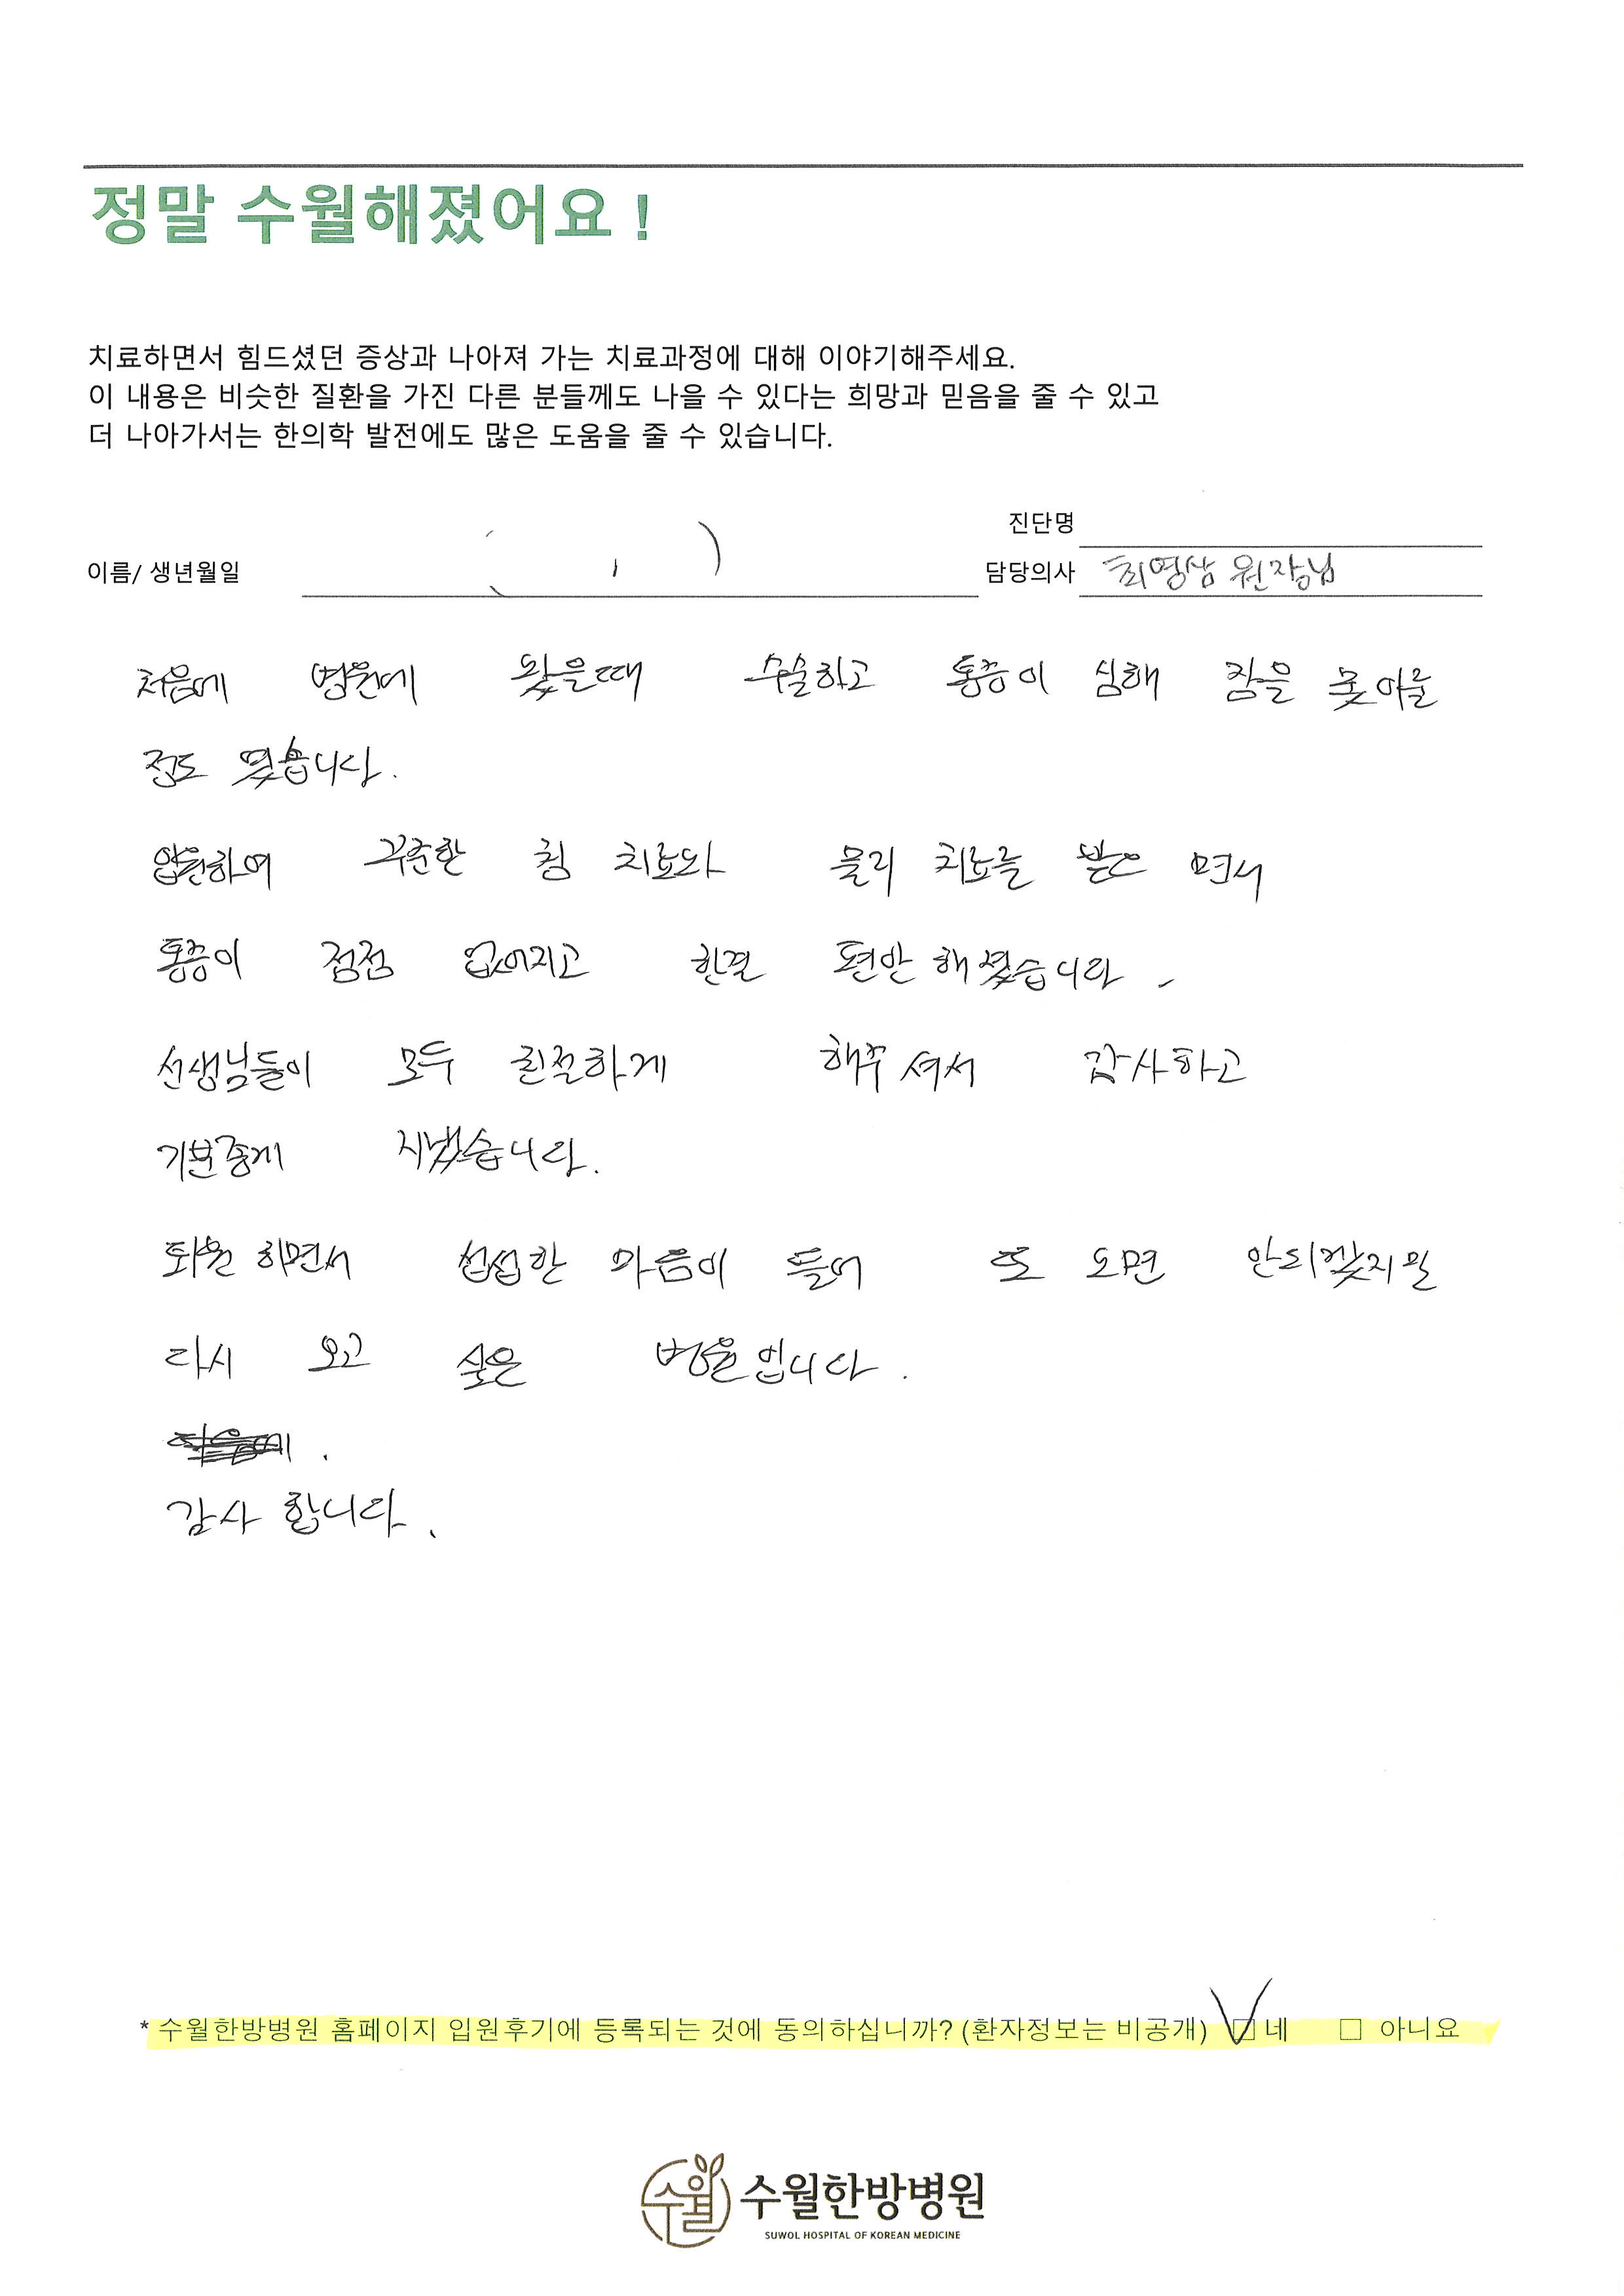 정말 수월해졌어요!
치료하면서 힘드셨던 증상과 나아져 가는 치료과정에 대해 이야기해주세요.
이 내용은 비슷한 질환을 가진 다른 분들께도 나을 수 있다는 희망과 믿음을 줄 수 있고
더 나아가서는 한의학 발전에도 많은 도움을 줄 수 있습니다.
진단명
이름/ 생년월일 ( , ) 담당의사 최영상 원장님
처음에 병원에 왔을때 수술하고 통증이 심해 잠을 못 이룰
정도 였습니다.
입원하여 꾸준한 침 치료와 물리 치료를 받으 면서
통증이 점점 없어지고 한결 편안 해졌습니다.
선생님들이 모두 친절하게 해주셔서 감사하고
기분좋게 지냈습니다.
퇴원 하면서 섭섭한 마음이 들어 또 오면 안되겠지만
다시 오고 싶은 병원입니다.
감사 합니다.
* 수월한방병원 홈페이지 입원후기에 등록되는 것에 동의하십니까? (환자정보는 비공개) ☑ 네 □ 아니요
수월 수월한방병원
SUWOL HOSPITAL OF KOREAN MEDICINE